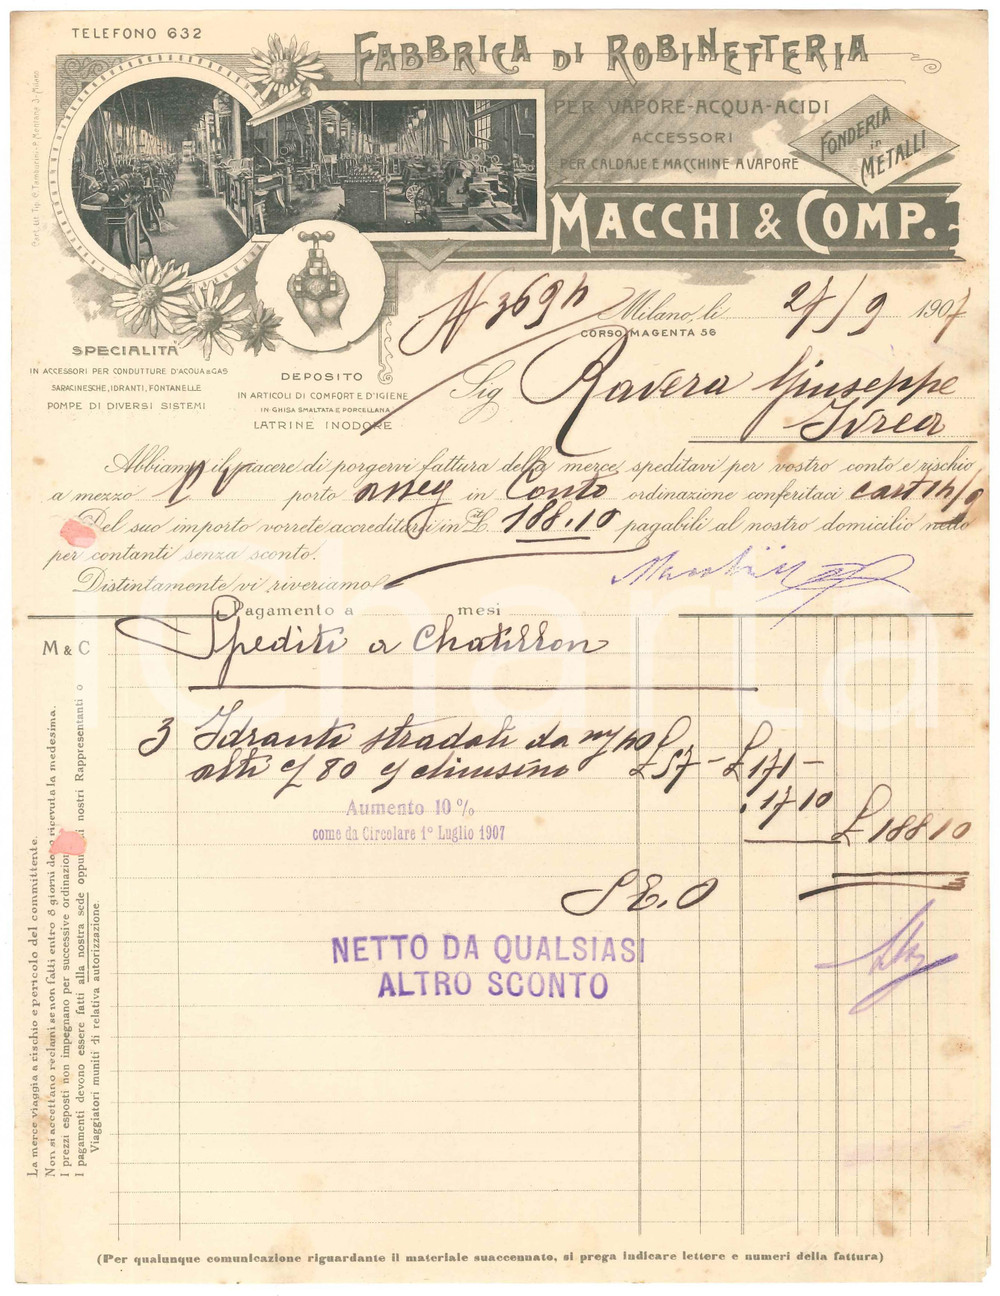 TELEFONO 632
FABBRICA DI ROBINETTERIA
PER VAPORE-ACQUA-ACIDI
ACCESSORI
PER CALDAJE E MACCHINE A VAPORE
FONDERIA
in
METALLI
MACCHI & COMP.
Cart. Lit. Tip. C. Tamburini - P. Beltrade 3 - Milano
N 369 h
Milano, li 27/9 1907
CORSO MAGENTA 56
SPECIALITÀ
IN ACCESSORI PER CONDUTTURE D'ACQUA & GAS
SARACINESCHE, IDRANTI, FONTANELLE
POMPE DI DIVERSI SISTEMI
DEPOSITO
IN ARTICOLI DI COMFORT E D'IGIENE
IN GHISA SMALTATA E PORCELLANA
LATRINE INODORE
Sig Ravera Giuseppe
Ivrea
Abbiamo il piacere di porgervi fattura della merce speditavi per vostro conto e rischio
a mezzo PV porto asseg in Conto ordinazione conferitaci cart 14/9
Del suo importo vorrete accreditarci in It. L. 188.10 pagabili al nostro domicilio netto
per contanti senza sconto.
Distintamente vi riveriamo
Pagamento a mesi
M & C
Spediti a Chatillon
3 Idranti stradali da m/m 40 £ 57 - £ 171 -
alti c/ 80 c/ chiusino . 17 10
Aumento 10 %
come da Circolare 1° Luglio 1907
£ 188 10
S. E. O
NETTO DA QUALSIASI
ALTRO SCONTO
La merce viaggia a rischio e pericolo del committente.
Non si accettano reclami se non fatti entro 8 giorni dopo ricevuta la medesima.
I prezzi esposti non impegnano per successive ordinazioni
I pagamenti devono essere fatti alla nostra sede oppure ai nostri Rappresentanti o
Viaggiatori muniti di relativa autorizzazione.
iCharta
(Per qualunque comunicazione riguardante il materiale suaccennato, si prega indicare lettere e numeri della fattura)